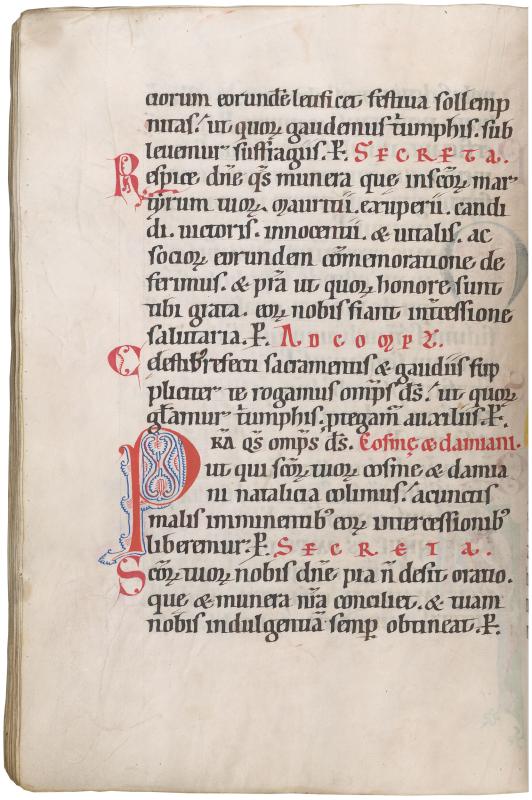 ciorum eorundē letificet festiua sollemp
nitas. ut quoꝝ gaudemus t̾umphis. sub
leuemur suffragiis. P̲. SECRETA.
Respice dn̄e q̄s munera que in scōꝝ mar
tẏrum tuoꝝ. Mauritii. exuperii. candi
di. uictoris. innocentii. & uitalis. ac
socioꝝ eorundem cōmemoratione de
ferimus. & p̄ra ut quoꝝ honore sunt
tibi grata. eoꝝ nobis fiant int̾cessione
salutaria. P̲. AD COMPL̄.
Celestib; refecti sacramentis & gaudiis sup
pliciter te rogamus omp̄s ds̄. ut quoꝝ
gl̄amur t̾umphis. ꝓtegam̄ auxiliis. P̲.
PR̄A q̄s omp̄s ds̄. Cosmę & damiani.
ut qui scōꝝ tuoꝝ cosme & damia
ni natalicia colimus. a cunctis
malis imminentib; eoꝝ intercessionib;
liberemur. P̲. SECRETA.
Scōꝝ tuoꝝ nobis dn̄e pia n̄ desit oratio.
que & munera nr̄a conciliet. & tuam
nobis indulgentiā semꝑ obtineat. P̲.